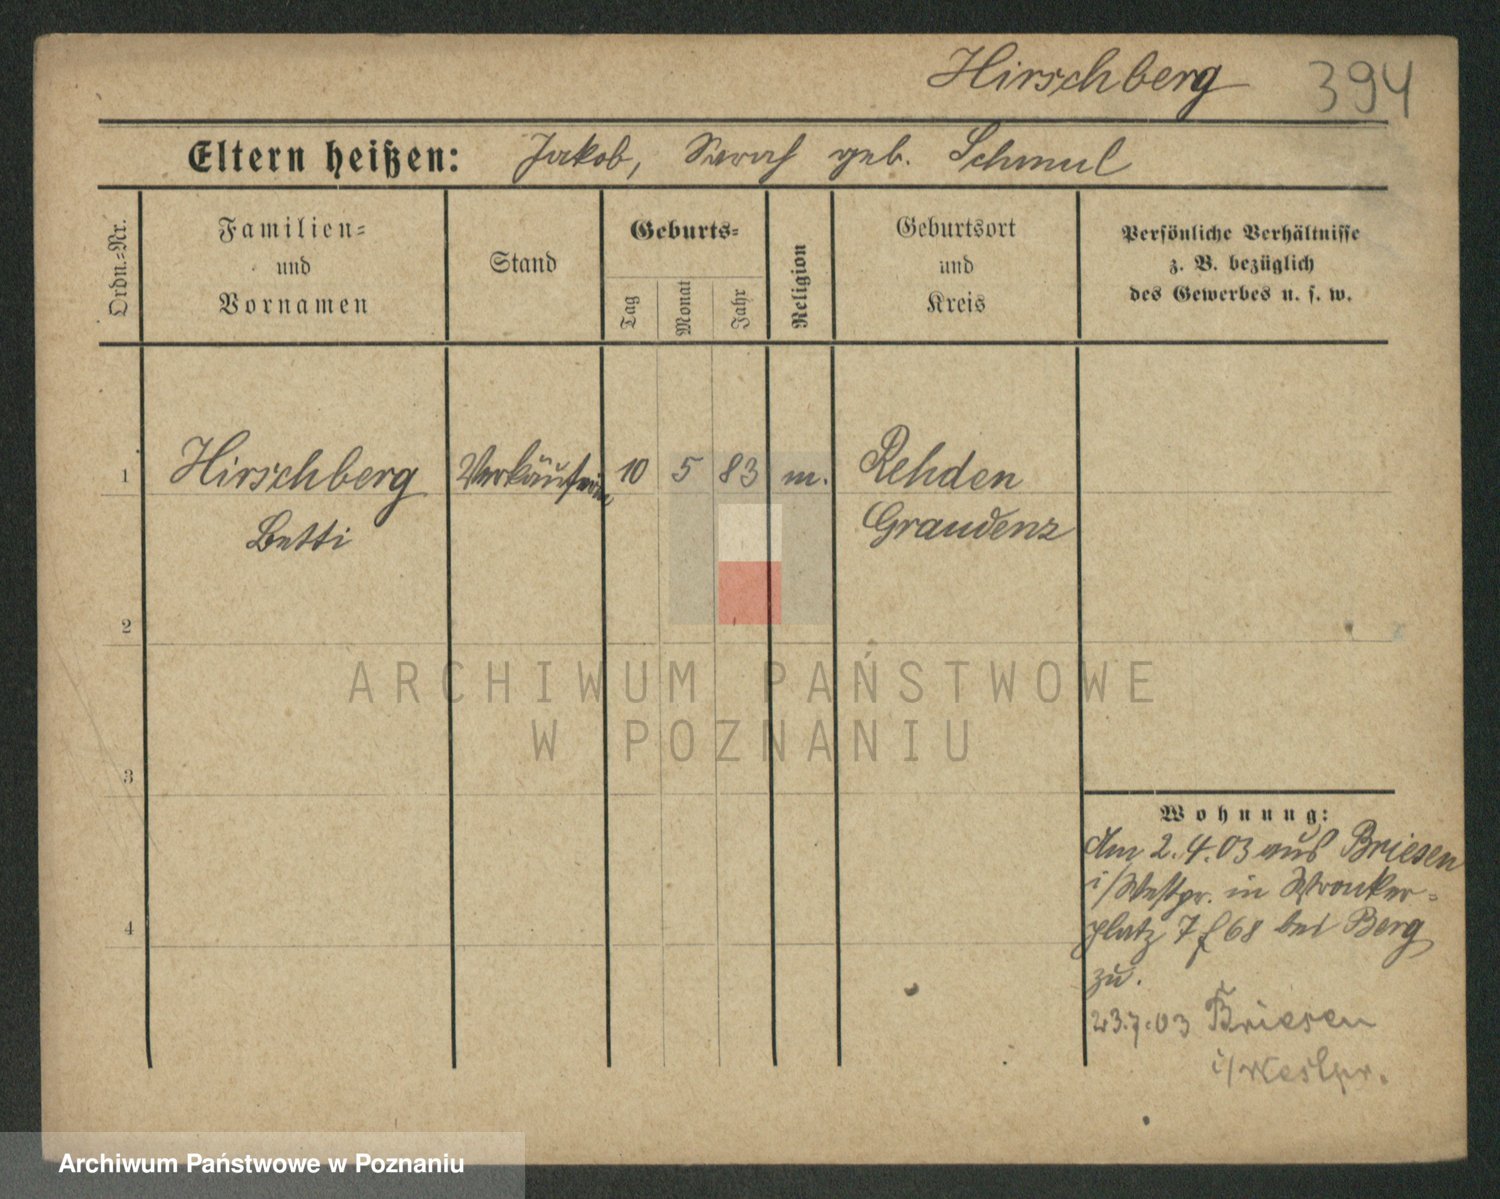 Hirschberg 394
Eltern heißen: Jakob, Sarah geb. Schmul
Ordn.=Nr.
Familien=
und
Vornamen
Stand
Geburts=
Tag
Monat
Jahr
Religion
Geburtsort
und
Kreis
Persönliche Verhältnisse
z. B. bezüglich
des Gewerbes u. s. w.
1 Hirschberg Verkäuferin 10 5 83 m. Rehden
Betti Graudenz
2
ARCHIWUM PAŃSTWOWE
W POZNANIU
3
Wohnung:
Am 2.4.03 aus Briesen
i/Westpr. in Wronker=
4
platz 7 f 68 bei Berg
zu.
23.7.03 Briesen
i/Westpr.
Archiwum Państwowe w Poznaniu